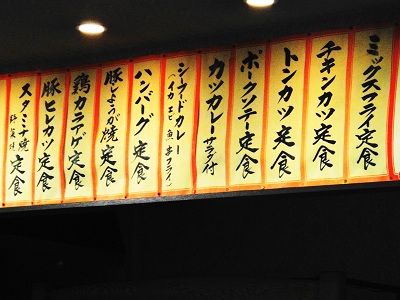 ミックスフライ定食
チキンカツ定食
トンカツ定食
ポークソテー定食
カツカレー サラダ付
シーフードカレー
(イカ エビ 魚 串フライ)
ハンバーグ定食
豚しょうが焼定食
鶏カラアゲ定食
豚ヒレカツ定食
スタミナ焼 定食